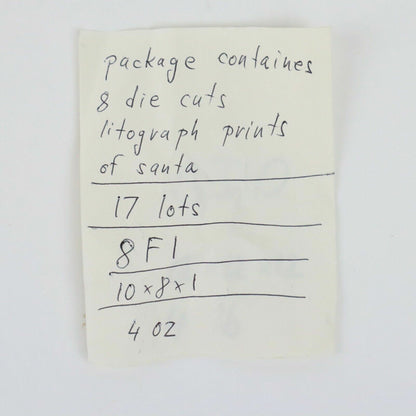 package containes
8 die cuts
litograph prints
of santa
17 lots
8 F 1
10 x 8 x 1
4 OZ